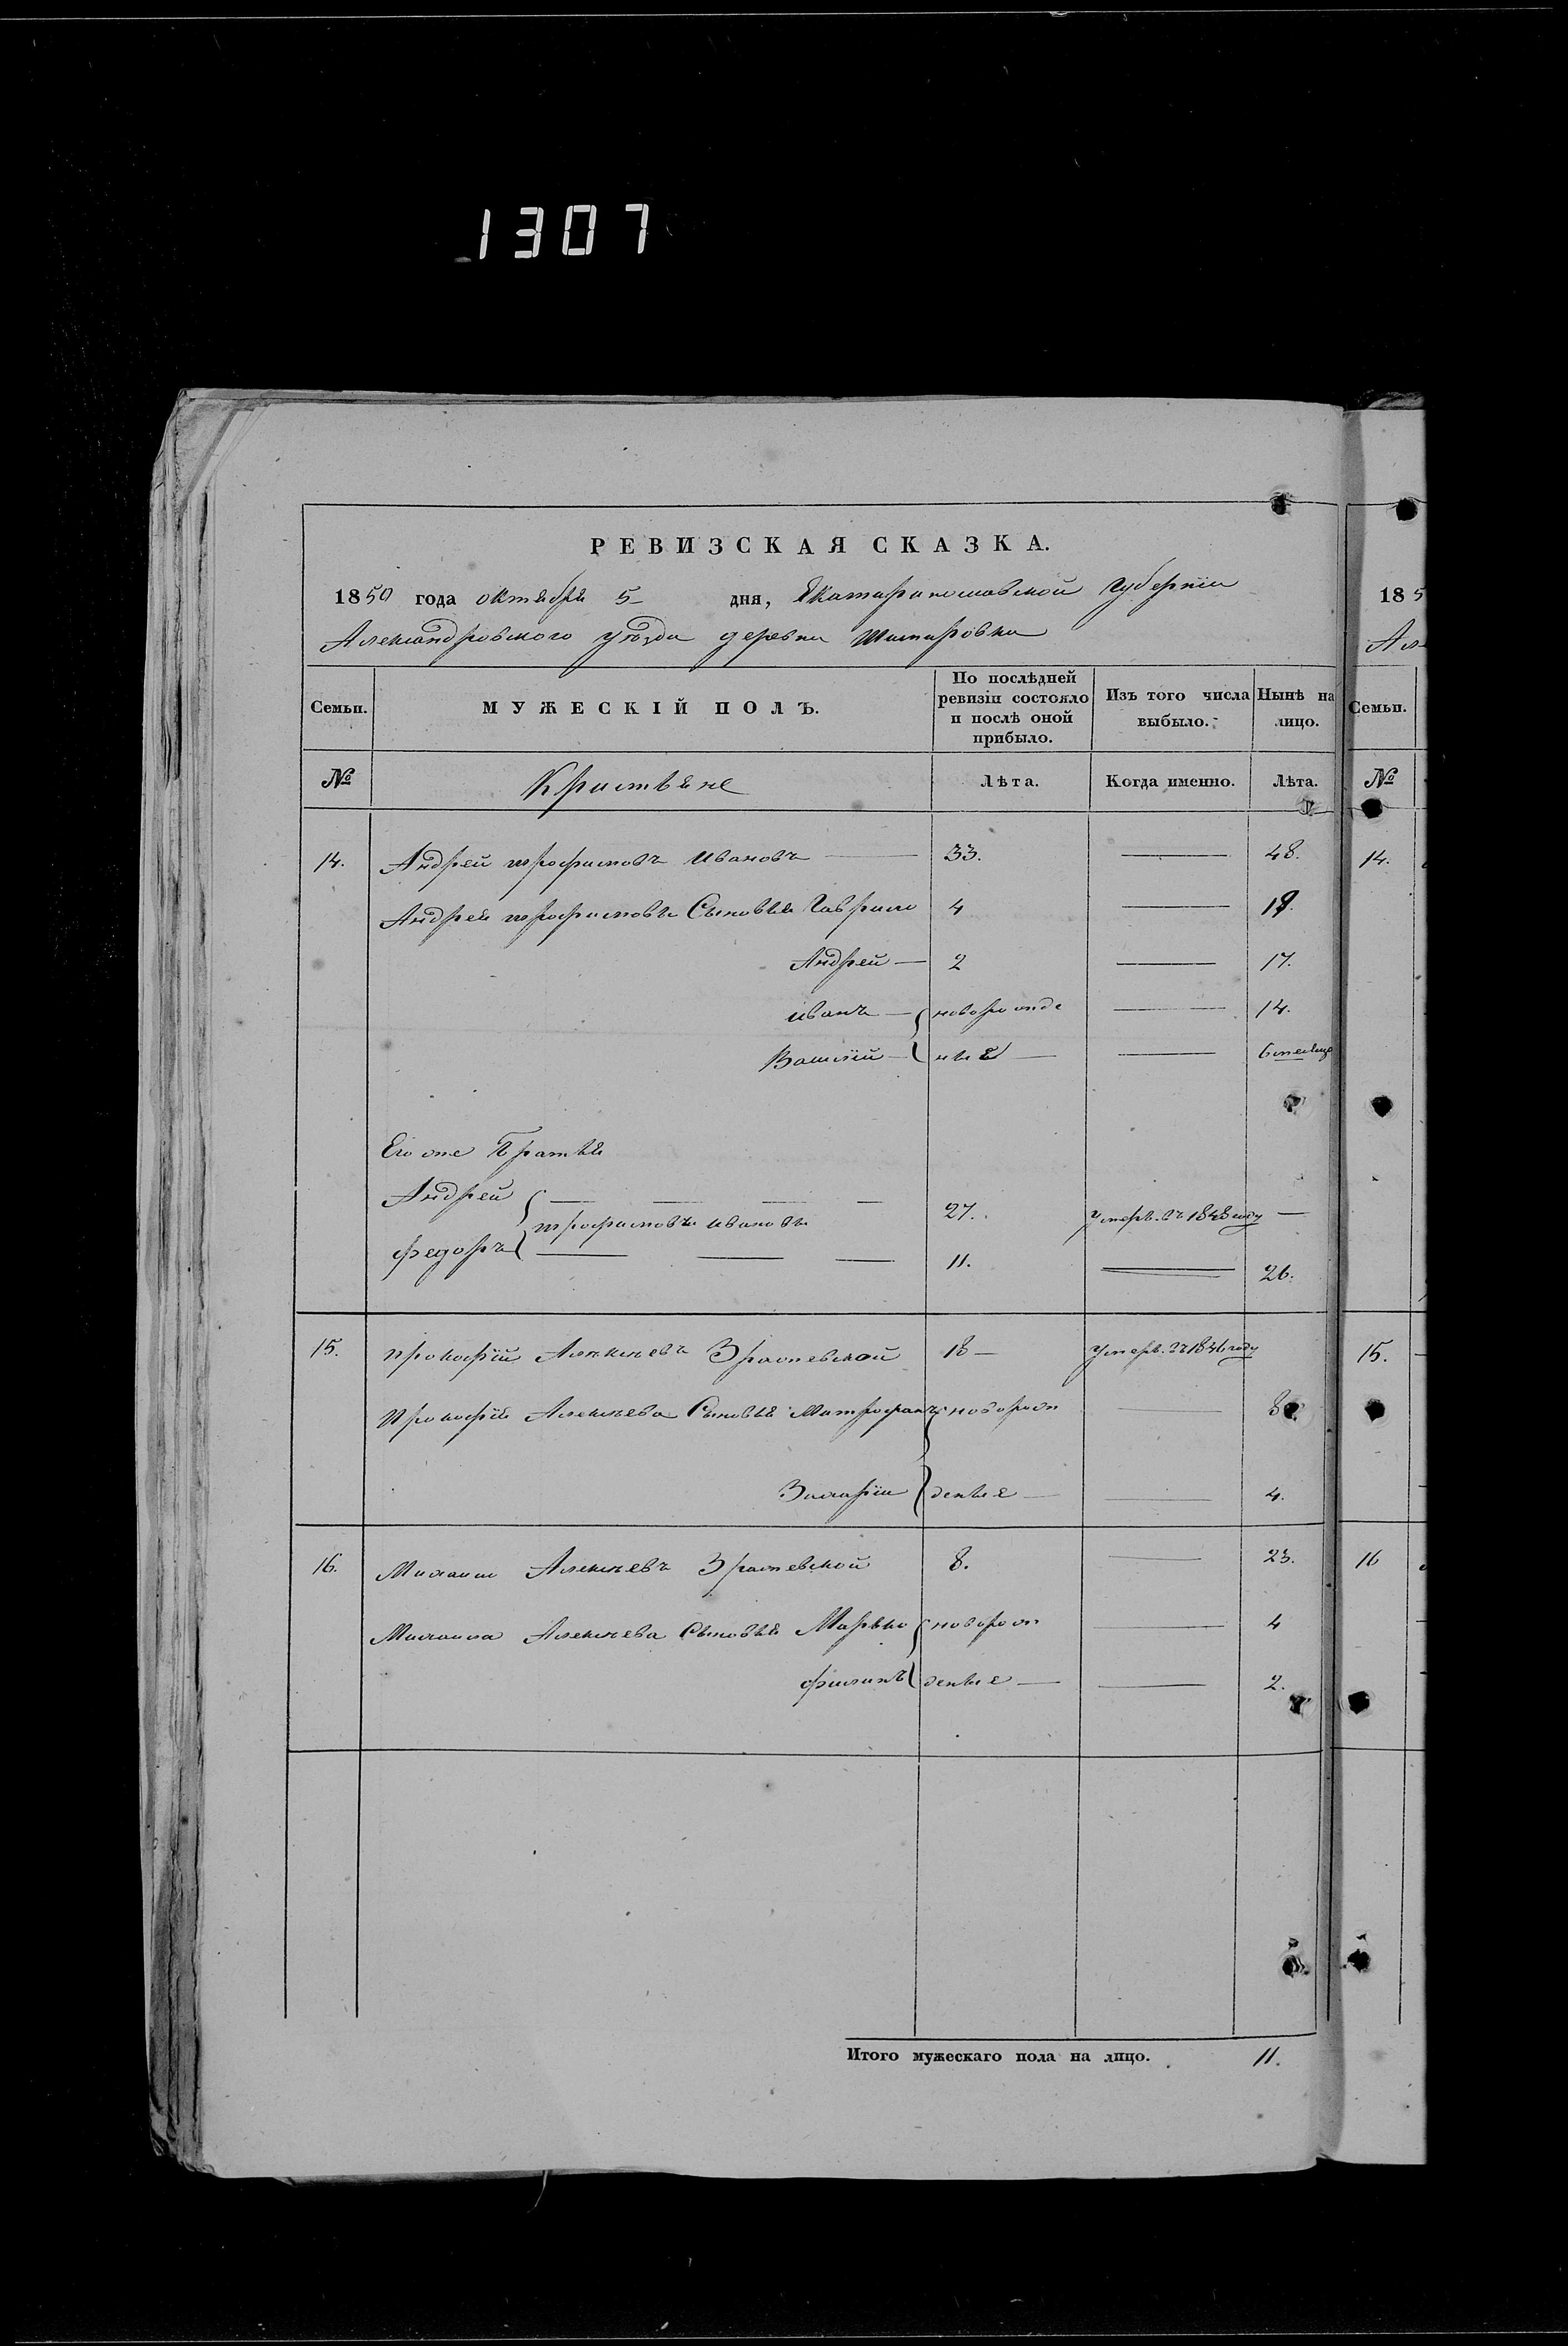 1307
РЕВИЗСКАЯ СКАЗКА.
1850 года октября 5 дня, Екатеринославской Губернии
Александровского уѣзда деревни
Семьи.
МУЖЕСКІЙ ПОЛЪ.
По послѣдней ревизіи состояло и послѣ оной прибыло.
Изъ того числа выбыло.
Нынѣ на лицо.
№
Кристьяне
Лѣта.
Когда именно.
Лѣта.
14. Андрей трофимовъ Ивановъ — 33. — 48.
Андрея трофимова Сыновья Гаврило 4 — 19.
Андрей — 2 — 17.
Иванъ — новорожде — 14.
Василій — ныя — 6 месяце
Его же Братья
Андрей — — — — 27. умерь. въ 1848 году —
трофимовы Ивановы
федоръ — — — 11. — 26.
15. прокофій Алексѣевъ Зражевской 18 — умерь. въ 1846 году
Прокофія Алексѣева Сыновья Митрофанъ новорож — 8
Захарій денные — 4.
16. Михаило Алексѣевъ Зражевской 8. — 23.
Михаила Алексѣева Сыновья Марько новорож — 4
филипъ денные — 2.
Итого мужескаго пола на лицо. 11.
185
Ал
Семьи.
№
14.
15.
16